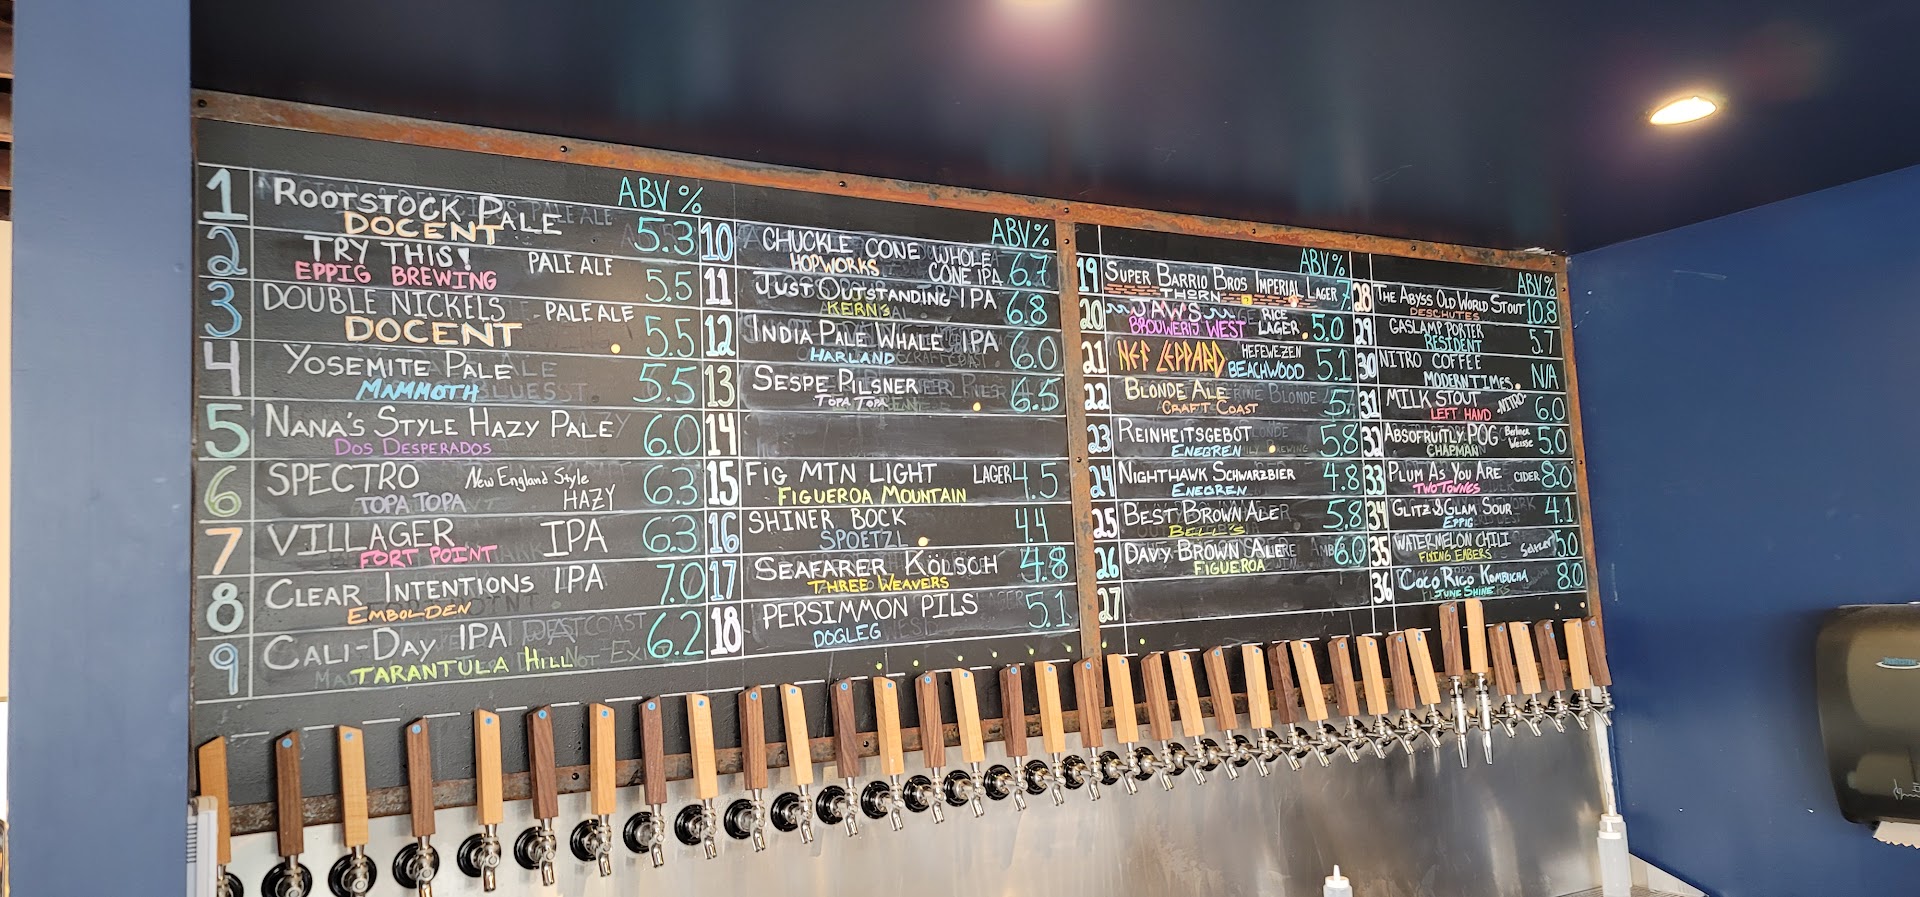 ABV %
1 ROOTSTOCK PALE 5.3
DOCENT
2 TRY THIS! PALE ALE 5.5
EPPIG BREWING
3 DOUBLE NICKELS - PALE ALE 5.5
DOCENT
4 YOSEMITE PALE 5.5
MAMMOTH
5 NANA'S STYLE HAZY PALE 6.0
DOS DESPERADOS
6 SPECTRO New England Style HAZY 6.3
TOPA TOPA
7 VILLAGER IPA 6.3
FORT POINT
8 CLEAR INTENTIONS IPA 7.0
EMBOLDEN
9 CALI-DAY IPA 6.2
TARANTULA HILL
ABV%
10 CHUCKLE CONE WHOLE CONE IPA 6.7
HOPWORKS
11 JUST OUTSTANDING IPA 6.8
KERN
12 INDIA PALE WHALE IPA 6.0
HARLAND
13 SESPE PILSNER
TOPA TOPA
14
15 FIG MTN LIGHT LAGER 4.5
FIGUEROA MOUNTAIN
16 SHINER BOCK 4.4
SPOETZL
17 SEAFARER KÖLSCH 4.8
THREE WEAVERS
18 PERSIMMON PILS 5.1
DOGLEG
ABV%
19 SUPER BARRIO BROS IMPERIAL LAGER 7
THORN
20 JAWS RICE LAGER 5.0
BROUWERIJ WEST
21 HEF LEPPARD HEFEWEZEN 5.1
BEACHWOOD
22 BLONDE ALE 5.
CRAFT COAST
23 REINHEITSGEBOT 5.8
ENEGREN
24 NIGHTHAWK SCHWARZBIER 4.8
ENEGREN
25 BEST BROWN ALE 5.8
BELL'S
26 DAVY BROWN ALE 6.0
FIGUEROA
27
ABV%
28 THE ABYSS OLD WORLD STOUT 10.8
DESCHUTES
29 GASLAMP PORTER 5.7
RESIDENT
30 NITRO COFFEE N/A
MODERN TIMES
31 MILK STOUT "NITRO" 6.0
LEFT HAND
32 ABSOFRUITLY POG Berliner Weisse 5.0
CHAPMAN
33 PLUM AS YOU ARE CIDER 8.0
TWO TOWNES
34 GLITZ & GLAM SOUR 4.1
EPPIG
35 WATERMELON CHILI Seltzer 5.0
FLYING EMBERS
36 COCO RICO KOMBUCHA 8.0
JUNE SHINE